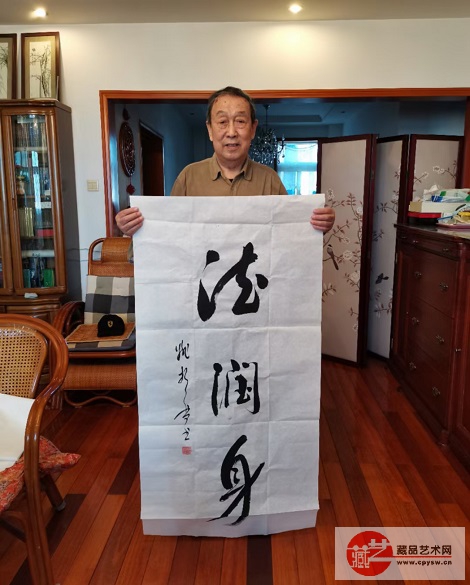 德
润
身
藏艺
藏品艺术网
www.cpysw.cn